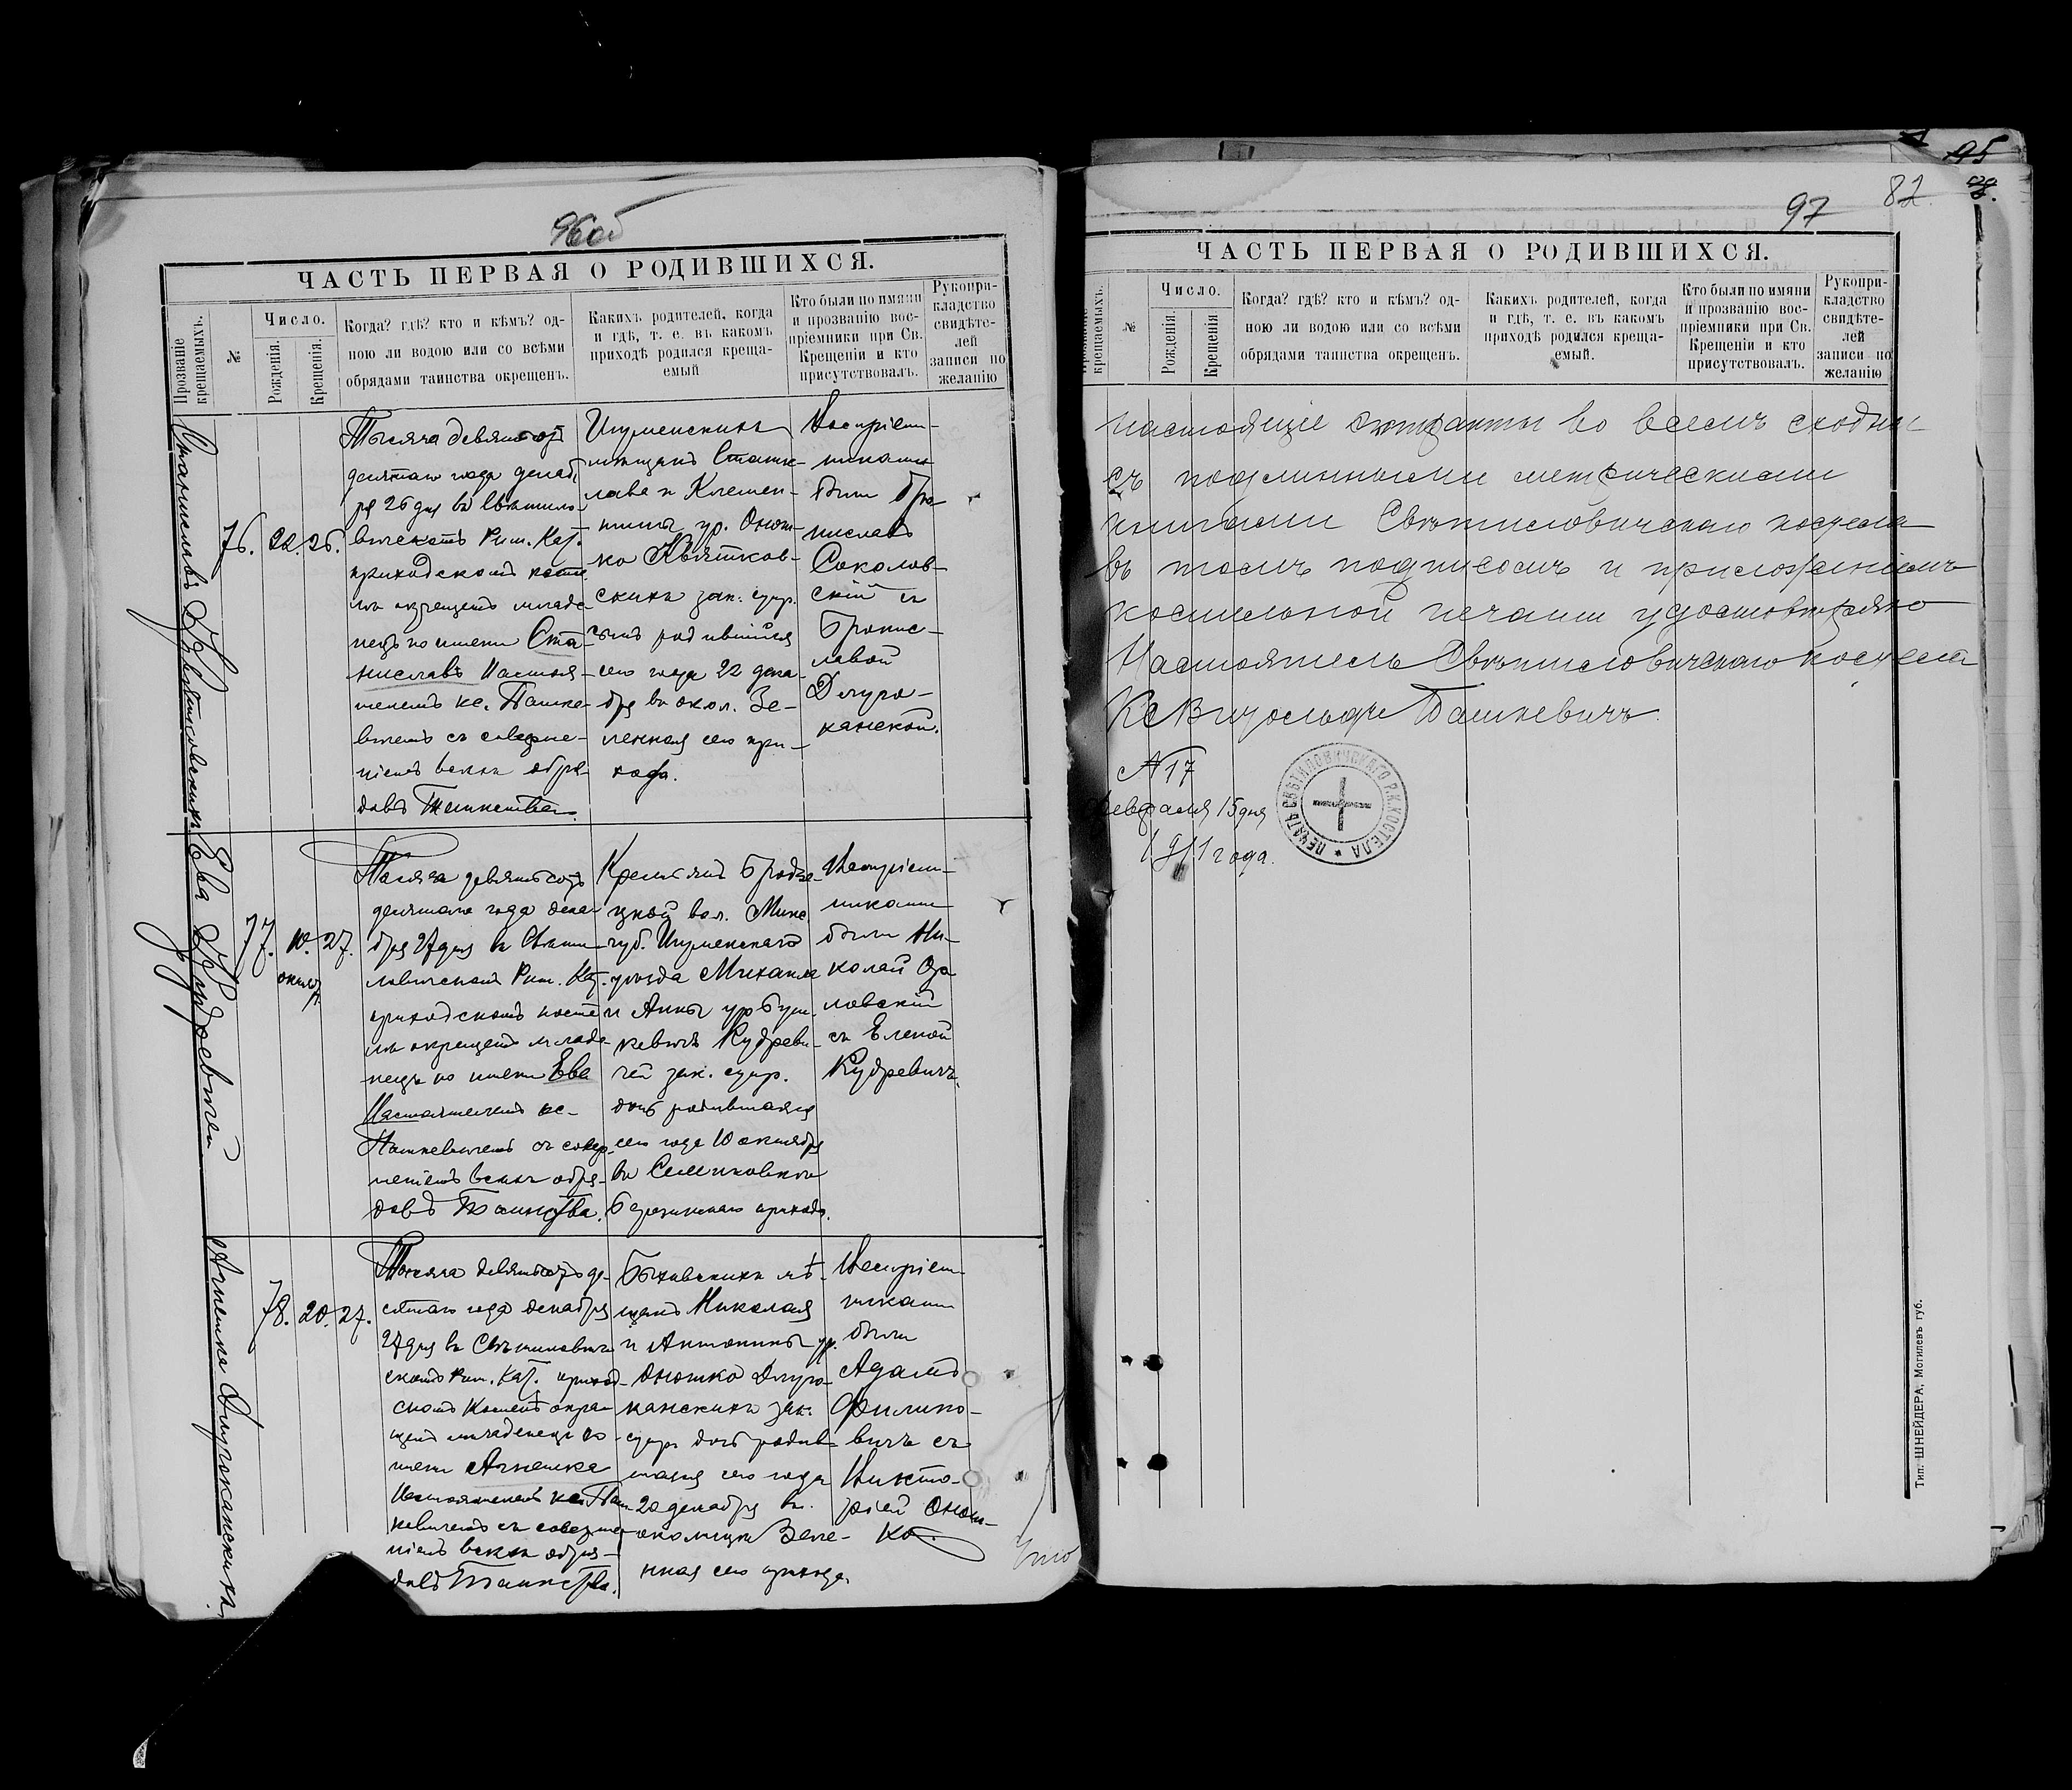 96об
ЧАСТЬ ПЕРВАЯ О РОДИВШИХСЯ.
Прозваніе крещаемыхъ.
№
Число.
Рожденія.
Крещенія.
Когда? гдѣ? кто и кѣмъ? од-
ною ли водою или со всѣми
обрядами таинства окрещенъ.
Какихъ родителей, когда
и гдѣ, т. е. въ какомъ
приходѣ родился креща-
емый
Кто были по имяни
и прозванію вос-
пріемники при Св.
Крещеніи и кто
присутствовалъ.
Рукопри-
кладство
свидѣте-
лей
записи по
желанію
Станиславъ Квятковскихъ
76.
22.
26.
Тысяча девятьсотъ
десятаго года декаб
ря 26 дня въ Свѣтило
вичскомъ Рим. Кат.
приходскомъ косте
лѣ окрещенъ младе
нецъ по имени Ста-
ниславъ Настоя-
телемъ кс. Пашке-
вичемъ съ соверше-
ніемъ всѣхъ обря-
довъ Таинства.
Игуменскихъ
мѣщанъ Станис-
лава и Клемен-
тины ур. Онош-
ко Квятков-
скихъ зак. супр.
сынъ родившійся
сего года 22 дека-
бря въ окол. Зе-
ленкая сего при-
хода.
Воспріем-
никами
были Бро
ниславъ
Соколов-
скій съ
Бронис-
лавой
Длуго-
канской.
Ева Кудревичей
77.
10.
октяб.
27.
Тысяча девятьсотъ
десятаго года дека
бря 27 дня въ Свѣти-
ловичскомъ Рим. Кат.
приходскомъ косте
лѣ окрещенъ младе
нецъ по имени Ева
Настоятелемъ кс.
Пашкевичемъ съ совер
шеніемъ всѣхъ обря-
довъ Таинства.
Крестьянъ Бродзе-
цкой вол. Минс.
губ. Игуменскаго
уѣзда Михаила
и Анны ур Буц
кевичъ Кудреви-
чей зак. супр.
дочь родившаяся
сего года 10 октября
въ Селиковкѣ
Березинскаго прихода.
Воспріем-
никами
были Ни-
колай Оза
ловскій
съ Еленой
Кудревичъ.
Агнешка Длугоканскихъ
78.
20.
27.
Тысяча девятьсотъ де-
сятаго года декабря
27 дня въ Свѣтилович
скомъ Рим. Кат. приход-
скомъ костелѣ окре
щенъ младенецъ по
имени Агнешка
Настоятелемъ кс. Паш
кевичемъ съ соверше
ніемъ всѣхъ обря-
довъ Таинства.
Быховскихъ мѣ-
щанъ Николая
и Антонины ур.
Оношко Длуго-
канскихъ зак.
супр. дочь родив-
шаяся сего года
20 декабря въ
околицѣ Зеле-
нкая сего прихода.
Воспріем-
никами
были
Адамъ
Филипо-
вичъ съ
Викто-
ріей Онош-
ко.
95
82.
97
ЧАСТЬ ПЕРВАЯ О РОДИВШИХСЯ.
крещаемыхъ.
№
Число.
Рожденія.
Крещенія
Когда? гдѣ? кто и кѣмъ? од-
ною ли водою или со всѣми
обрядами таинства окрещенъ.
Какихъ родителей, когда
и гдѣ, т. е. въ какомъ
приходѣ родился креща-
емый.
Кто были по имяни
и прозванію вос-
пріемники при Св.
Крещеніи и кто
присутствовалъ.
Рукопри-
кладство
свидѣте-
лей
записи по
желанію
Настоящіе экстракты во всемъ сходны
съ подлинными метрическими
книгами Свѣтиловичскаго костела
въ томъ подписомъ и приложеніемъ
костельной печати удостовѣряю
Настоятель Свѣтиловичскаго костела
Кс Витольдъ Пашкевичъ.
№ 17
Февраля 15 дня
1911 года.
ПЕЧАТЬ СВѢТИЛОВИЧСКАГО Р.К. КОСТЕЛА
Тип. ШНЕЙДЕРА, Могилевъ губ.